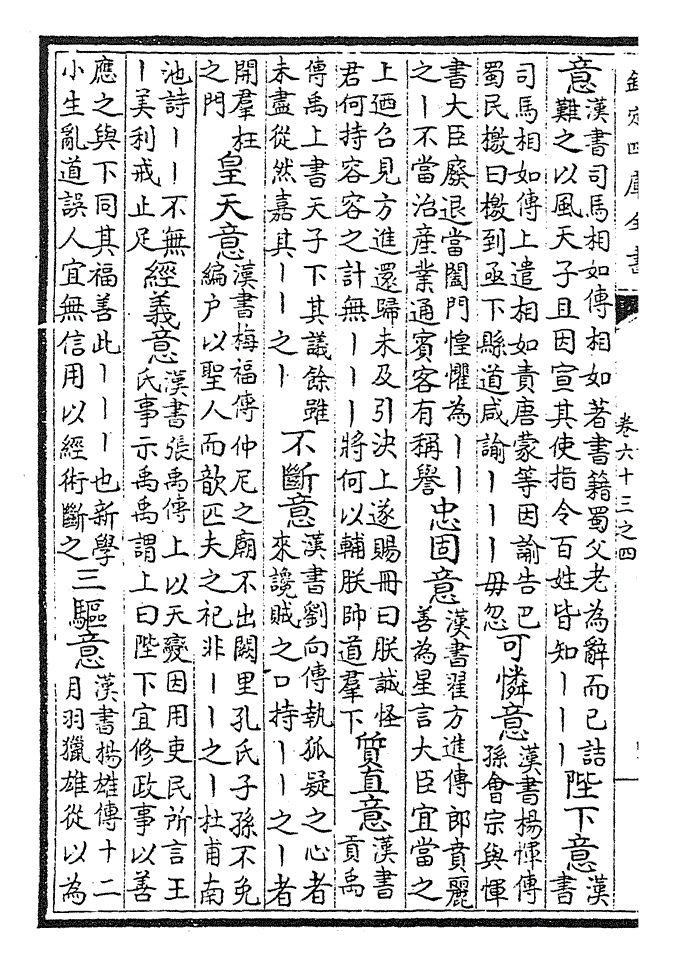 欽定四庫全書
卷六十三之四
意漢書司馬相如傳相如著書籍蜀父老為辭而已詰難之以風天子且因宣其使指令百姓皆知丨丨丨陛下意漢書
司馬相如傳上遣相如責唐蒙等因諭告巴蜀民檄曰檄到亟下縣道咸諭丨丨丨毋忽可憐意漢書楊惲傳孫會宗與惲
書大臣廢退當闔門惶懼為丨丨之丨不當治產業通賓客有稱譽忠固意漢書翟方進傳郎賁麗善為星言大臣宜當之
上廼召見方進還歸未及引決上遂賜冊曰朕誠怪君何持容容之計無丨丨丨將何以輔朕帥道羣下質直意漢書貢禹
傳禹上書天子下其議餘雖未盡從然嘉其丨丨之丨不斷意漢書劉向傳執狐疑之心者來讒賊之口持丨丨之丨者
開羣枉之門皇天意漢書梅福傳仲尼之廟不出闕里孔氏子孫不免編户以聖人而歆匹夫之祀非丨丨之丨杜甫南
池詩丨丨不無丨美利戒止足經義意漢書張禹傳上以天變因用吏民所言王氏事示禹禹謂上曰陛下宜修政事以善
應之與下同其福善此丨丨丨也新學小生亂道誤人宜無信用以經術斷之三驅意漢書楊雄傳十二月羽獵雄從以為